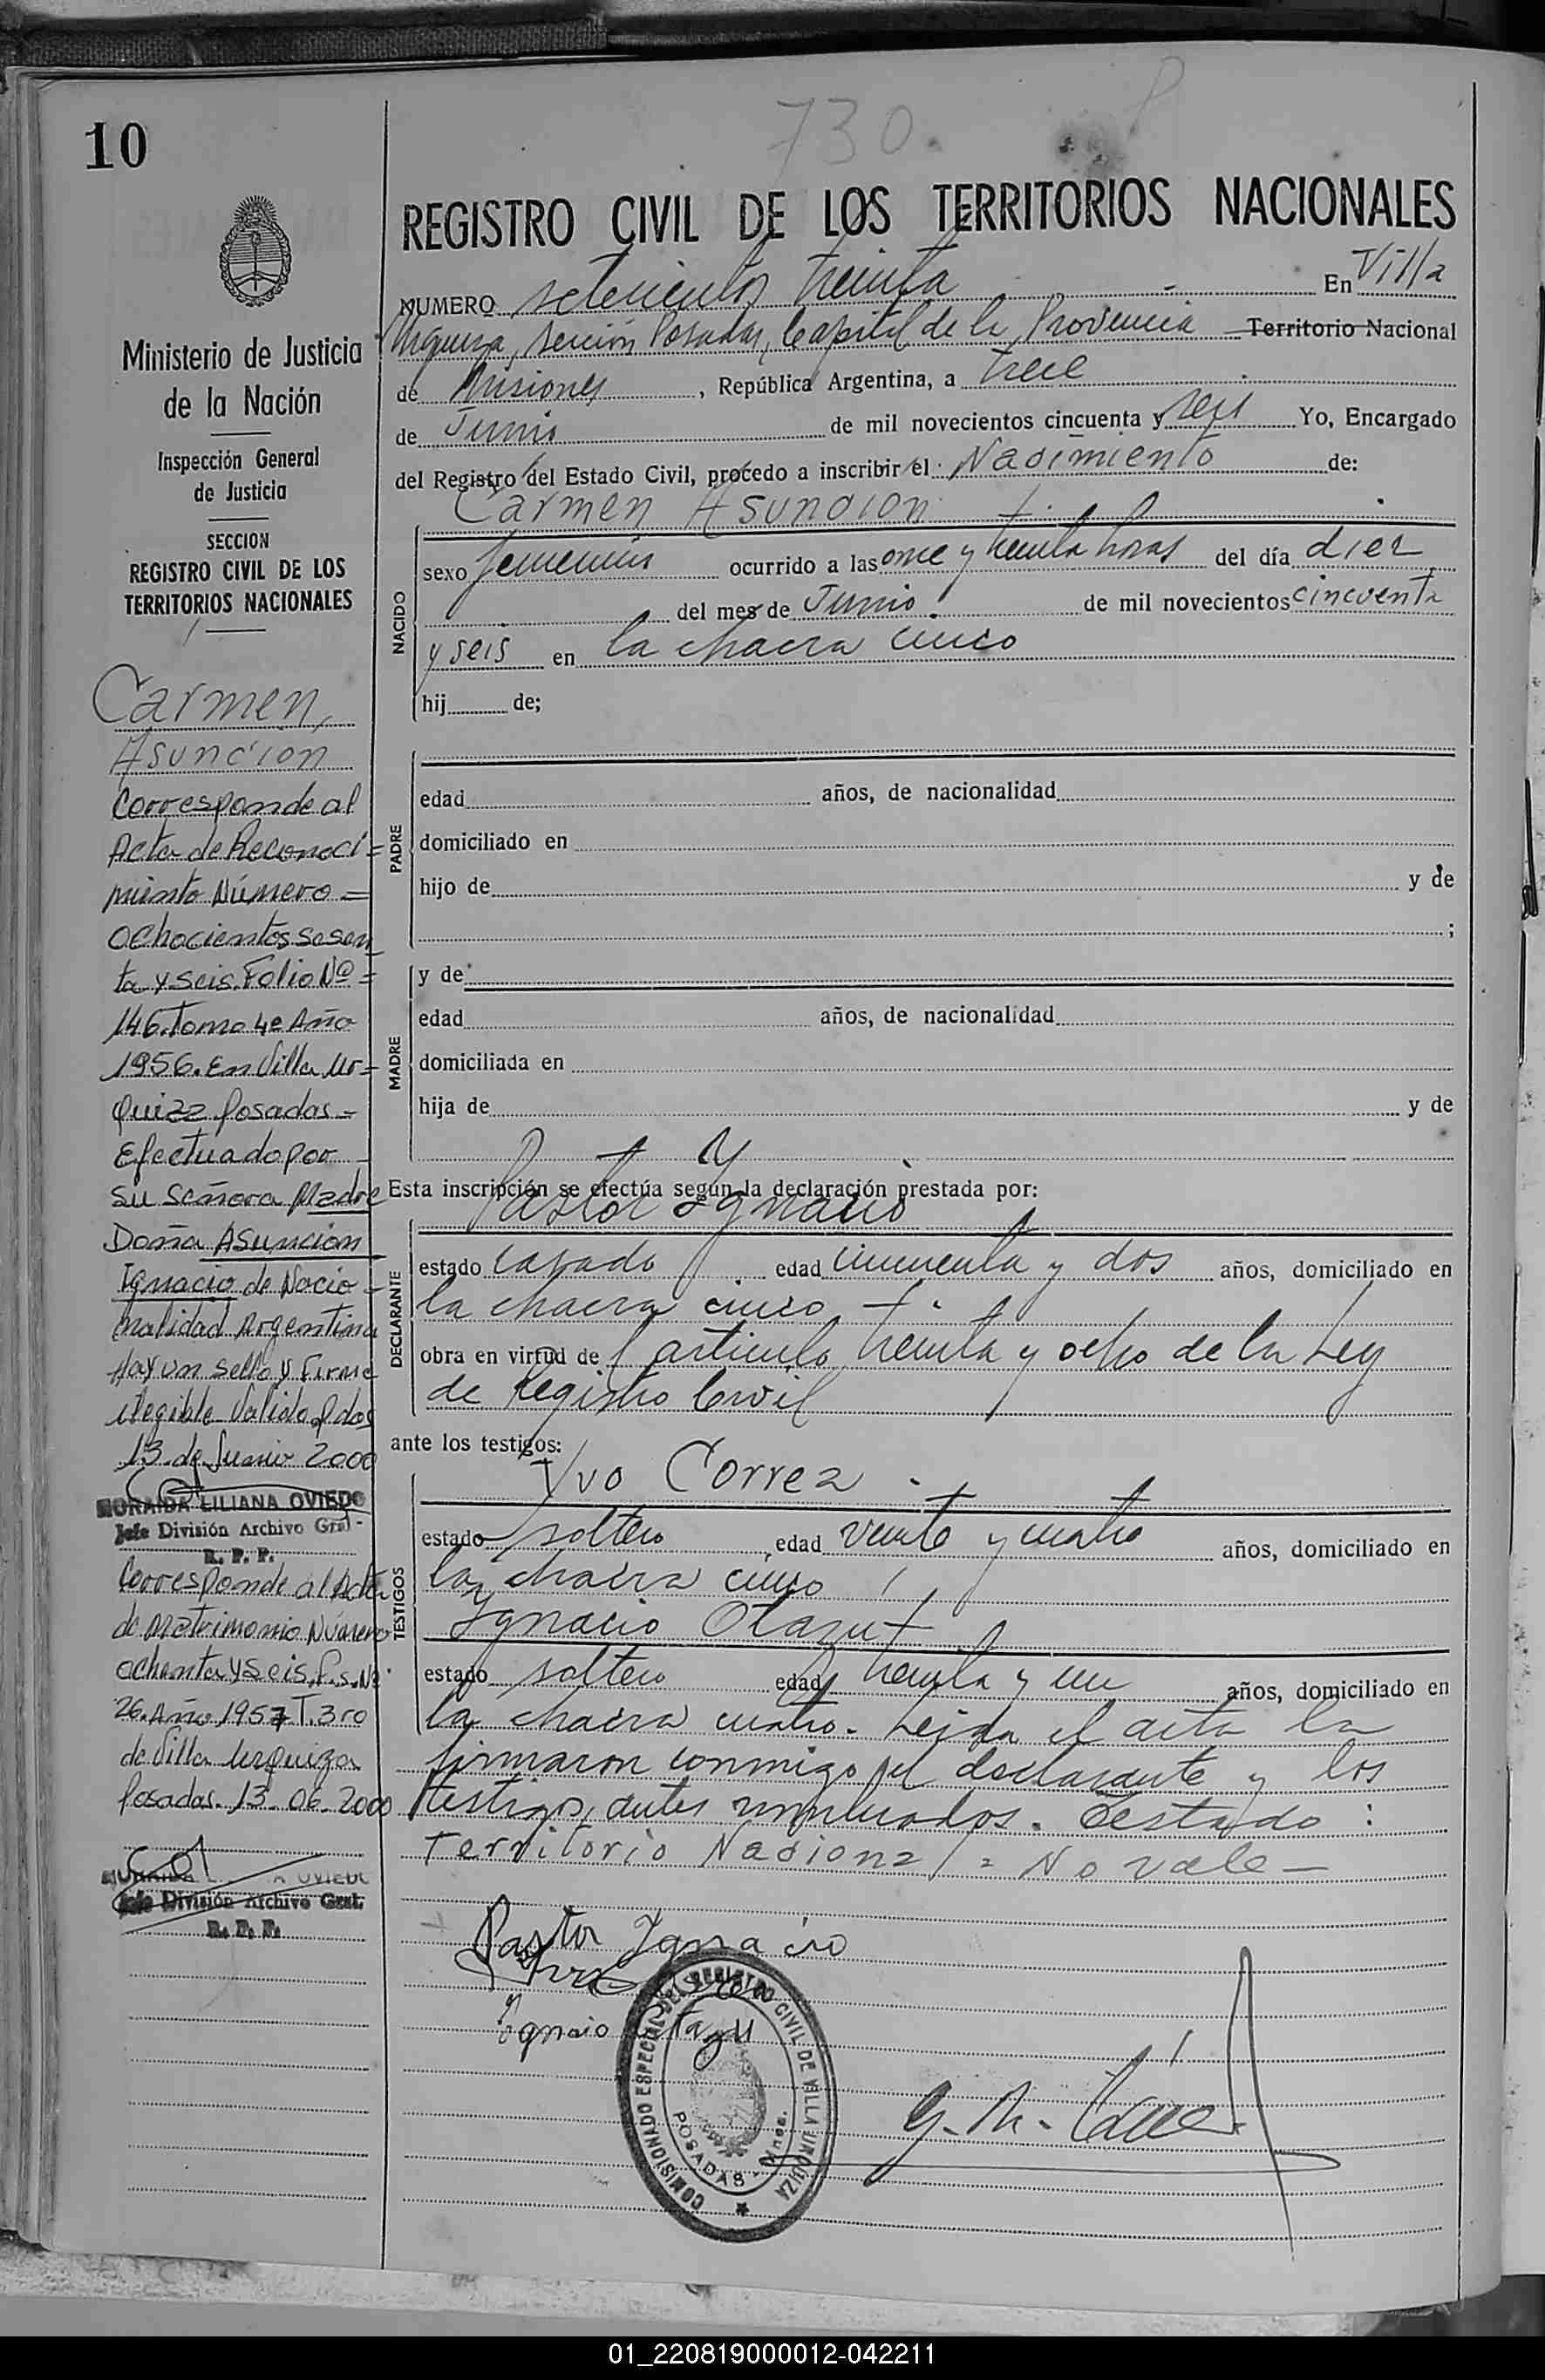 730.
10
REGISTRO CIVIL DE LOS TERRITORIOS NACIONALES
NUMERO setecientos treinta En Villa
Urquiza, sección Posadas, Capital de la Provincia Territorio Nacional
de Misiones, República Argentina, a trece
de Junio de mil novecientos cincuenta y seis Yo, Encargado
del Registro del Estado Civil, procedo a inscribir el: Nacimiento de:
Carmen Asuncion
NACIDO
sexo femenino ocurrido a las once y treinta horas del día diez
del mes de Junio de mil novecientos cincuenta
y seis en la chacra cinco
hij de;
PADRE
edad años, de nacionalidad
domiciliado en
hijo de y de
;
MADRE
y de
edad años, de nacionalidad
domiciliada en
hija de y de
Esta inscripción se efectúa según la declaración prestada por:
Pastor Ygnacio
DECLARANTE
estado casado edad cincuenta y dos años, domiciliado en
la chacra cinco
obra en virtud del articulo treinta y ocho de la Ley
de Registro Civil
ante los testigos:
TESTIGOS
Yvo Correa
estado soltero, edad veinte y cuatro años, domiciliado en
la chacra cinco
Ygnacio Olazu
estado soltero edad treinta y un años, domiciliado en
la chacra cuatro. Leida el acta la
firmaron conmigo el declarante y los
testigos, antes nombrados. Testado:
Territorio Nacional = No vale
Pastor Ygnacio
Ygnaio Olazu
COMISIONADO ESPECIAL DEL REGISTRO CIVIL DE VILLA URQUIZA
POSADAS - Mnes.
Ministerio de Justicia
de la Nación
Inspección General
de Justicia
SECCION
REGISTRO CIVIL DE LOS
TERRITORIOS NACIONALES
Carmen,
Asunción
Corresponde al
Acta de Reconoci=
miento Número=
ochocientos sesen
ta y seis. Folio Nº=
146. Tomo 4º Año
1956. En Villa Ur=
quiza Posadas-
Efectuado por
su señora Madre
Doña Asuncion
Ignacio de Nacio-
nalidad Argentina
Hay un sello y firma
ilegible Valido Pdas
13 de Junio 2000
MORAIDA LILIANA OVIEDO
Jefe División Archivo Gral.
R. P. P.
Corresponde al Acta
de Matrimonio Número
ochenta y seis, F.s. Nº
26. Año 1957 T. 3ro
de Villa Urquiza
Posadas. 13. 06. 2000
Jefe División Archivo Gral.
R. P. P.
01_220819000012-042211